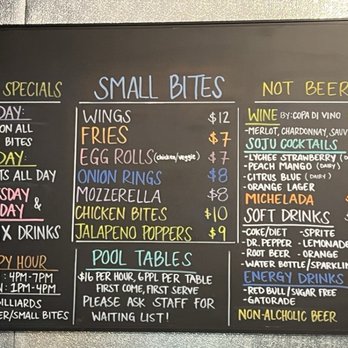 SPECIALS
DAY:
ON ALL
BITES
DAY:
TS ALL DAY
SDAY
DAY &
X DRINKS
PY HOUR
: 4PM-7PM
: 1PM-4PM
ILLIARDS
ER/SMALL BITES
SMALL BITES
WINGS $12
FRIES $7
EGG ROLLS (chicken/veggie) $7
ONION RINGS $8
MOZZERELLA $8
CHICKEN BITES $10
JALAPENO POPPERS $9
POOL TABLES
$16 PER HOUR, 6PPL PER TABLE
FIRST COME, FIRST SERVE
PLEASE ASK STAFF FOR
WAITING LIST!
NOT BEER
WINE BY: COPA DI VINO
-MERLOT, CHARDONNAY, SAUV
SOJU COCKTAILS
-LYCHEE STRAWBERRY (DAIRY)
-PEACH MANGO (DAIRY)
-CITRUS BLUE (DAIRY)
-ORANGE LAGER
MICHELADA
SOFT DRINKS
-COKE/DIET -SPRITE
-DR. PEPPER -LEMONADE
-ROOT BEER -ORANGE
-WATER BOTTLE/SPARKLIN
ENERGY DRINKS
-RED BULL/SUGAR FREE
-GATORADE
NON-ALCOHOLIC BEER